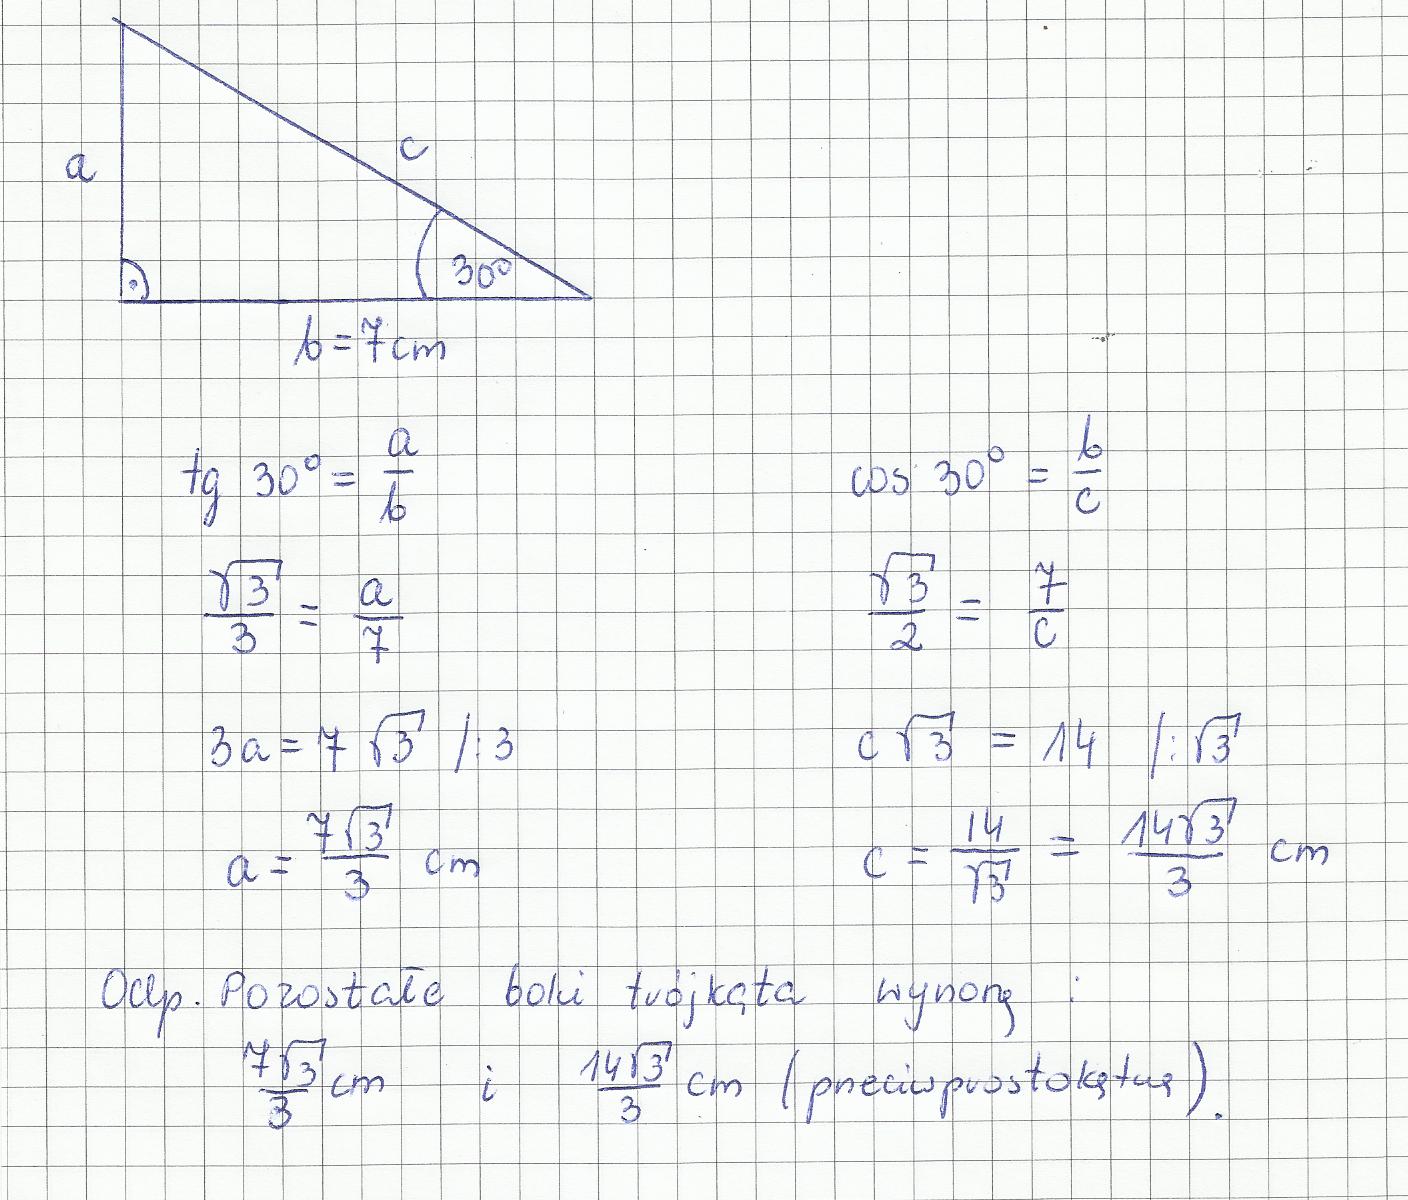 a
c
30°
b = 7cm
tg 30° = a/b
cos 30° = b/c
√3/3 = a/7
√3/2 = 7/c
3a = 7√3 /:3
c√3 = 14 /:√3
a = 7√3/3 cm
c = 14/√3 = 14√3/3 cm
Odp. Pozostałe boki trójkąta wynoszą :
7√3/3 cm i 14√3/3 cm (przeciwprostokątna).